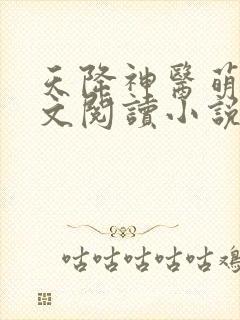 天降神醫萌
文閱讀小說
咕咕咕咕咕雞